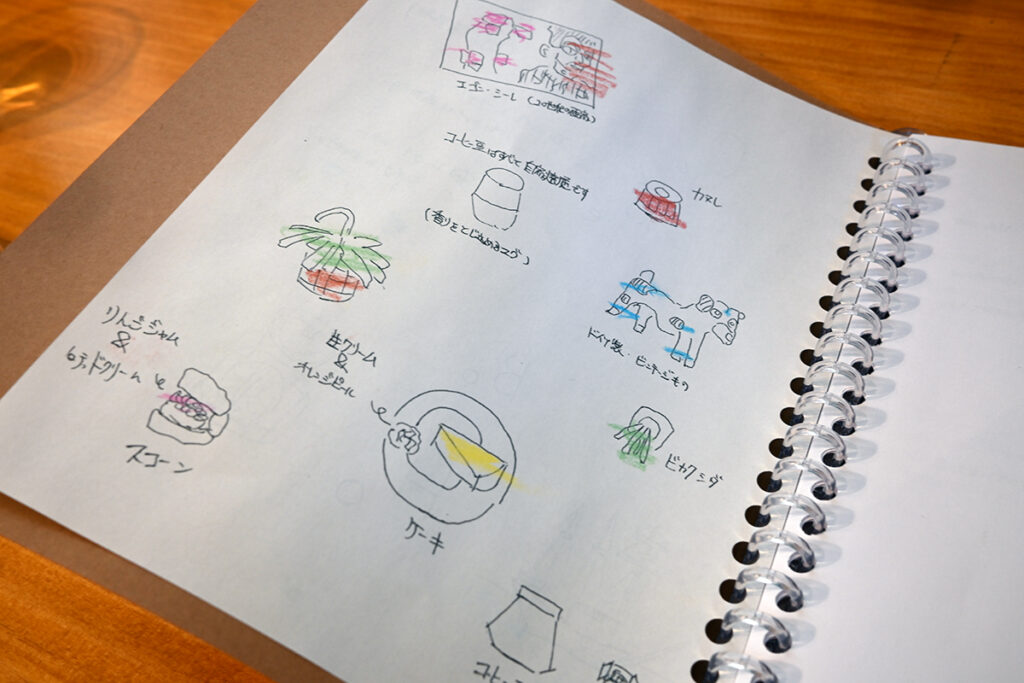 エゴン・シーレ (20世紀の画家)
コーヒー豆はすべて自家焙煎です
(香りをとじこめる
カヌレ
ドイツ製・ビンテージもの
りんごジャム
&
クリーム
スコーン
生クリーム
&
オレンジピール
ケーキ
ビカクシダ
コーヒ